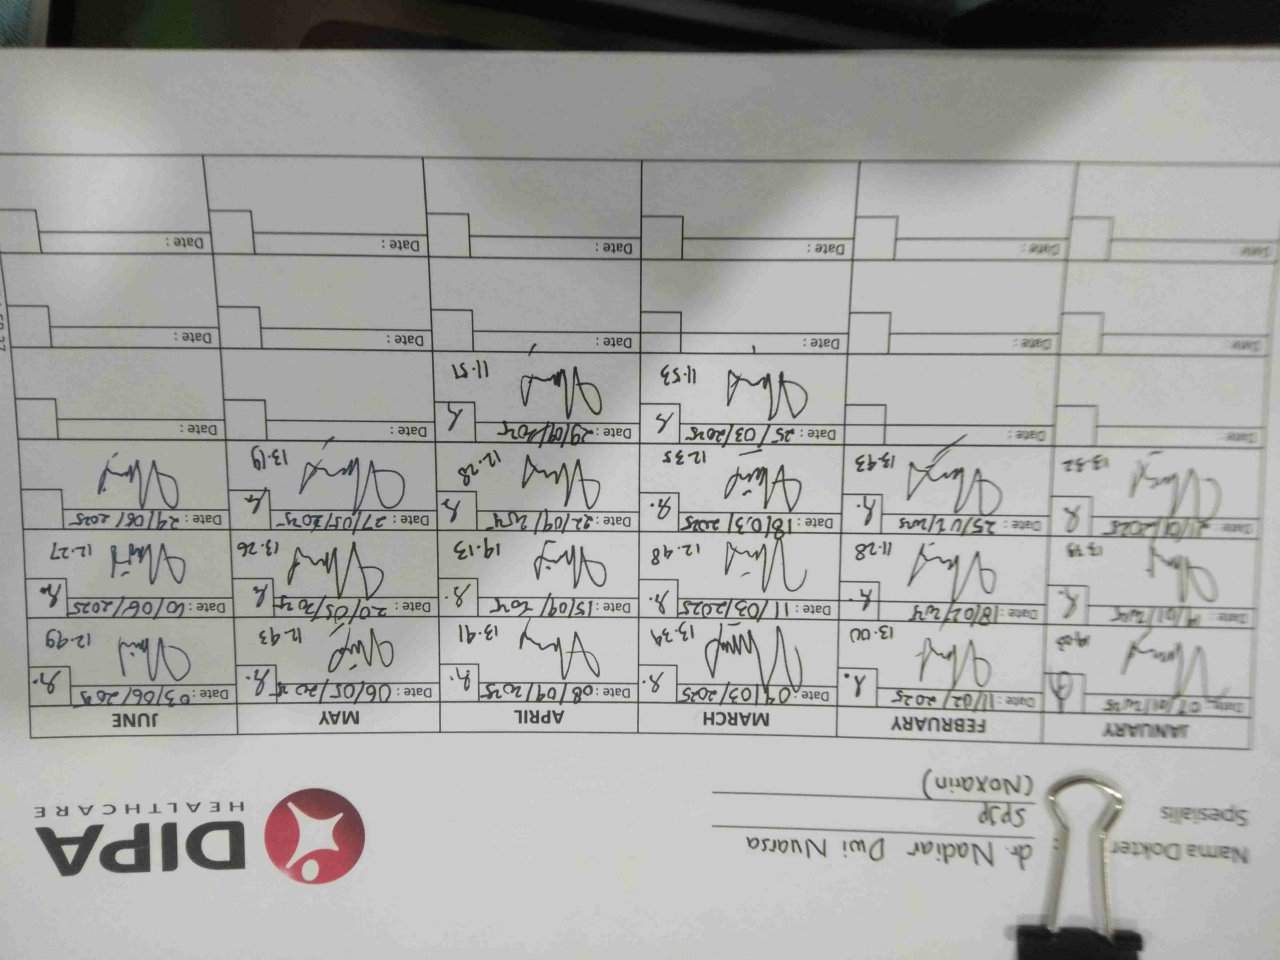 DIPA
HEALTHCARE
Nama Dokter : dr. Nadiar Dwi Nuarsa
Spesialis SpJP
(Noxarin)
JANUARY FEBRUARY MARCH APRIL MAY JUNE
Date: 07/01/2025 Date: 11/02/2025 Date: 04/03/2025 Date: 08/04/2025 Date: 06/05/2025 Date: 03/06/2025
13.00 13.34 13.41 12.43 12.49
Date: 14/01/2025 Date: 18/02/2025 Date: 11/03/2025 Date: 15/04/2025 Date: 20/05/2025 Date: 10/06/2025
11.28 12.48 14.13 13.26 12.27
Date: 21/01/2025 Date: 25/02/2025 Date: 18/03/2025 Date: 22/04/2025 Date: 27/05/2025 Date: 24/06/2025
13.32 13.43 12.35 12.28 13.19
Date: Date: Date: 25/03/2025 Date: 29/04/2025 Date: Date:
11.53 11.51
Date: Date: Date: Date: Date: Date:
Date: Date: Date: Date: Date: Date: